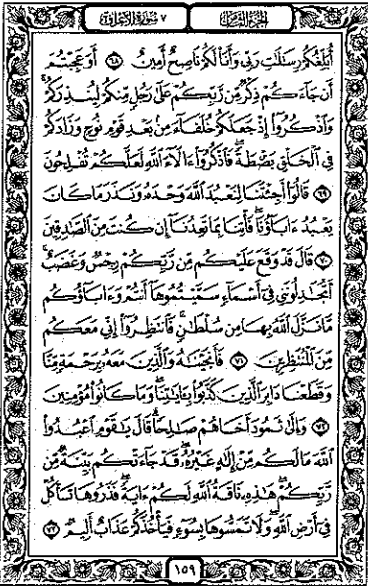 الجزء الثامن ٧ سورة الأعراف
أُبَلِّغُكُمْ رِسَٰلَٰتِ رَبِّي وَأَنَا۠ لَكُمْ نَاصِحٌ أَمِينٌ ۝٦٨ أَوَعَجِبْتُمْ
أَن جَآءَكُمْ ذِكْرٌ مِّن رَّبِّكُمْ عَلَىٰ رَجُلٍ مِّنكُمْ لِيُنذِرَكُمْ ۚ
وَٱذْكُرُوٓا۟ إِذْ جَعَلَكُمْ خُلَفَآءَ مِنۢ بَعْدِ قَوْمِ نُوحٍ وَزَادَكُمْ
فِي ٱلْخَلْقِ بَصْۜطَةً ۖ فَٱذْكُرُوٓا۟ ءَالَآءَ ٱللَّهِ لَعَلَّكُمْ تُفْلِحُونَ
۝٦٩ قَالُوٓا۟ أَجِئْتَنَا لِنَعْبُدَ ٱللَّهَ وَحْدَهُۥ وَنَذَرَ مَا كَانَ
يَعْبُدُ ءَابَآؤُنَا ۖ فَأْتِنَا بِمَا تَعِدُنَآ إِن كُنتَ مِنَ ٱلصَّٰدِقِينَ
۝٧٠ قَالَ قَدْ وَقَعَ عَلَيْكُم مِّن رَّبِّكُمْ رِجْسٌ وَغَضَبٌ ۖ
أَتُجَٰدِلُونَنِي فِيٓ أَسْمَآءٍ سَمَّيْتُمُوهَآ أَنتُمْ وَءَابَآؤُكُم
مَّا نَزَّلَ ٱللَّهُ بِهَا مِن سُلْطَٰنٍ ۚ فَٱنتَظِرُوٓا۟ إِنِّي مَعَكُم
مِّنَ ٱلْمُنتَظِرِينَ ۝٧١ فَأَنجَيْنَٰهُ وَٱلَّذِينَ مَعَهُۥ بِرَحْمَةٍ مِّنَّا
وَقَطَعْنَا دَابِرَ ٱلَّذِينَ كَذَّبُوا۟ بِـَٔايَٰتِنَا ۖ وَمَا كَانُوا۟ مُؤْمِنِينَ
۝٧٢ وَإِلَىٰ ثَمُودَ أَخَاهُمْ صَٰلِحًا ۗ قَالَ يَٰقَوْمِ ٱعْبُدُوا۟
ٱللَّهَ مَا لَكُم مِّنْ إِلَٰهٍ غَيْرُهُۥ ۖ قَدْ جَآءَتْكُم بَيِّنَةٌ مِّن
رَّبِّكُمْ ۖ هَٰذِهِۦ نَاقَةُ ٱللَّهِ لَكُمْ ءَايَةً ۖ فَذَرُوهَا تَأْكُلْ
فِيٓ أَرْضِ ٱللَّهِ ۖ وَلَا تَمَسُّوهَا بِسُوٓءٍ فَيَأْخُذَكُمْ عَذَابٌ أَلِيمٌ ۝٧٣
١٥٩